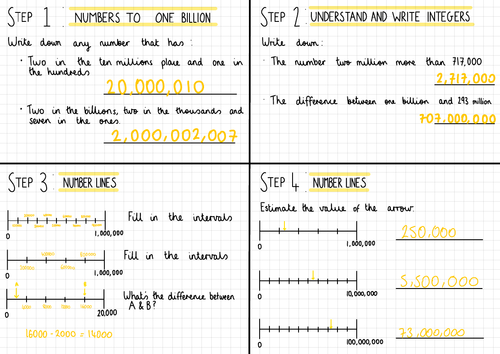 STEP 1 : NUMBERS TO ONE BILLION
Write down any number that has :
· Two in the ten millions place and one in
the hundreds
20,000,010
· Two in the billions, two in the thousands and
seven in the ones.
2,000,002,007
STEP 2 : UNDERSTAND AND WRITE INTEGERS
Write down :
· The number two million more than 717,000
2,717,000
· The difference between one billion and 293 million
707,000,000
STEP 3 : NUMBER LINES
0 1,000,000
Fill in the intervals
0 1,000,000
Fill in the intervals
A B
0 20,000
What's the difference between
A & B?
16000 - 2000 = 14000
STEP 4 : NUMBER LINES
Estimate the value of the arrow.
0 1,000,000
250,000
0 10,000,000
5,500,000
0 100,000,000
73,000,000